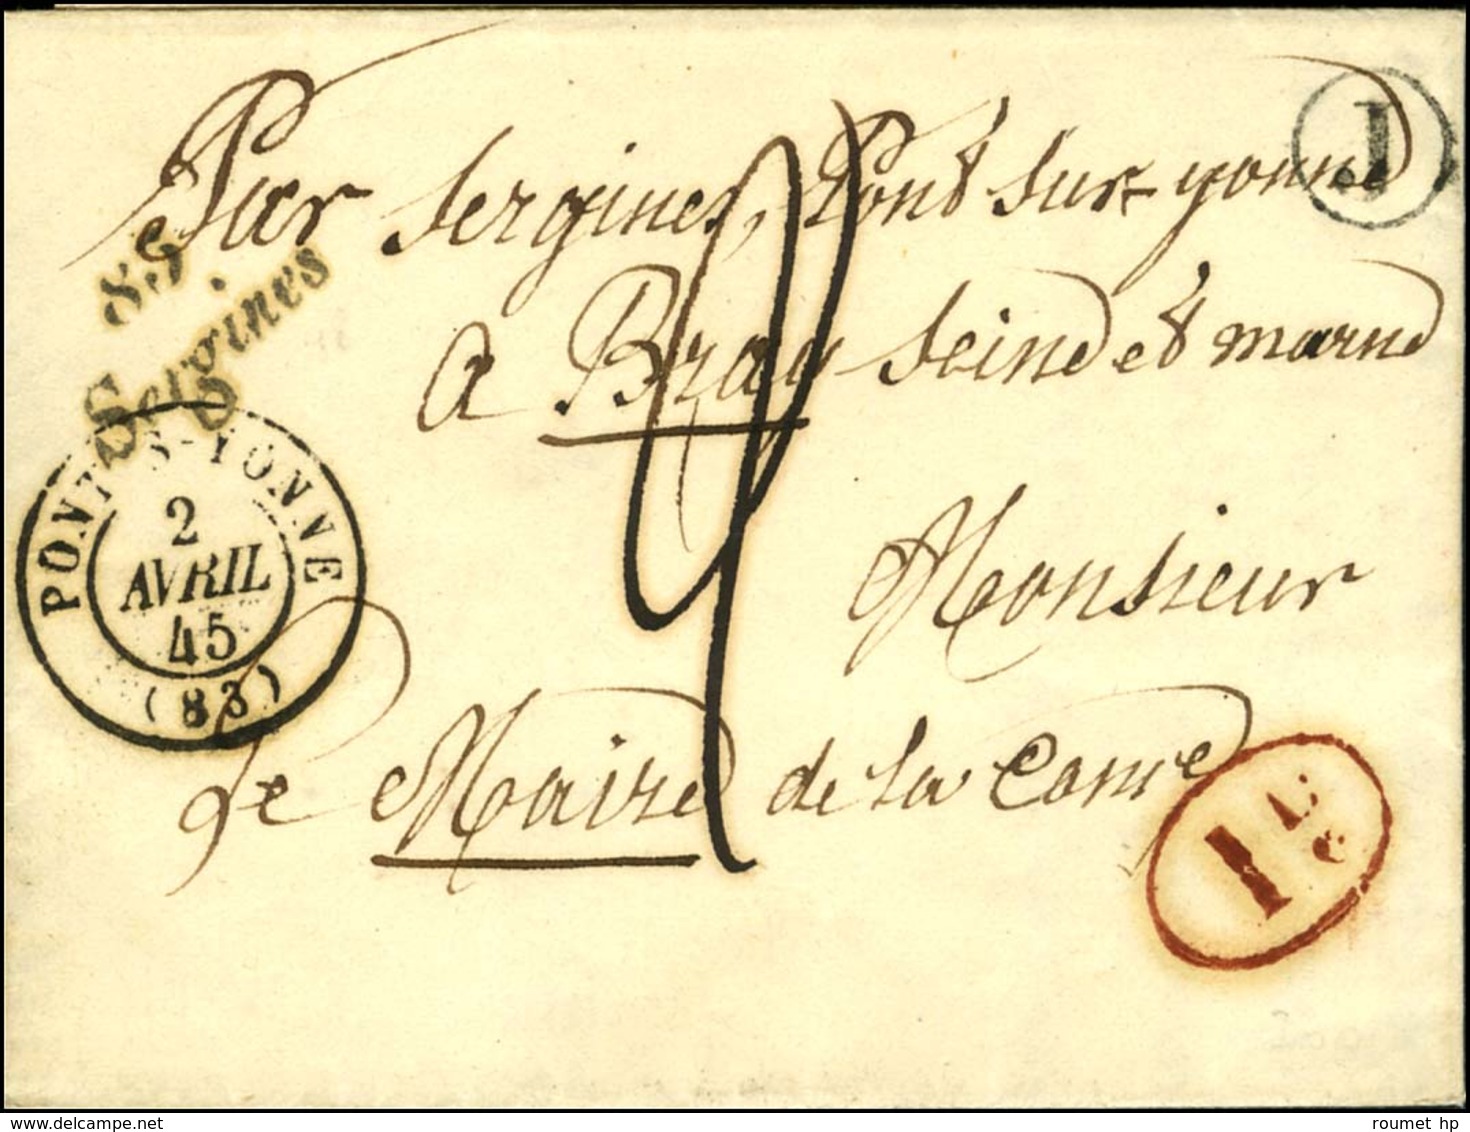 Par Sergines, Pont sur yonne
J
83
Sergines
a Bray Seine et marne
PONT-S-YONNE
2
AVRIL
45
(83)
Monsieur
Le Maire de la
1
roumet hp